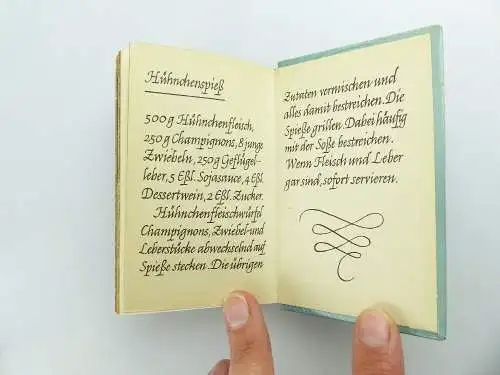 Hühnchenspieß
500g Hühnchenfleisch,
250g Champignons, 8 junge
Zwiebeln, 250g Geflügel-
leber, 5 Eßl. Sojasauce, 4 Eßl.
Dessertwein, 2 Eßl. Zucker.
Hühnchenfleischwürfel
Champignons, Zwiebel-und
Leberstücke abwechselnd auf
Spieße stecken. Die übrigen
Zutaten vermischen und
alles damit bestreichen. Die
Spieße grillen. Dabei häufig
mit der Soße bestreichen.
Wenn Fleisch und Leber
gar sind, sofort servieren.